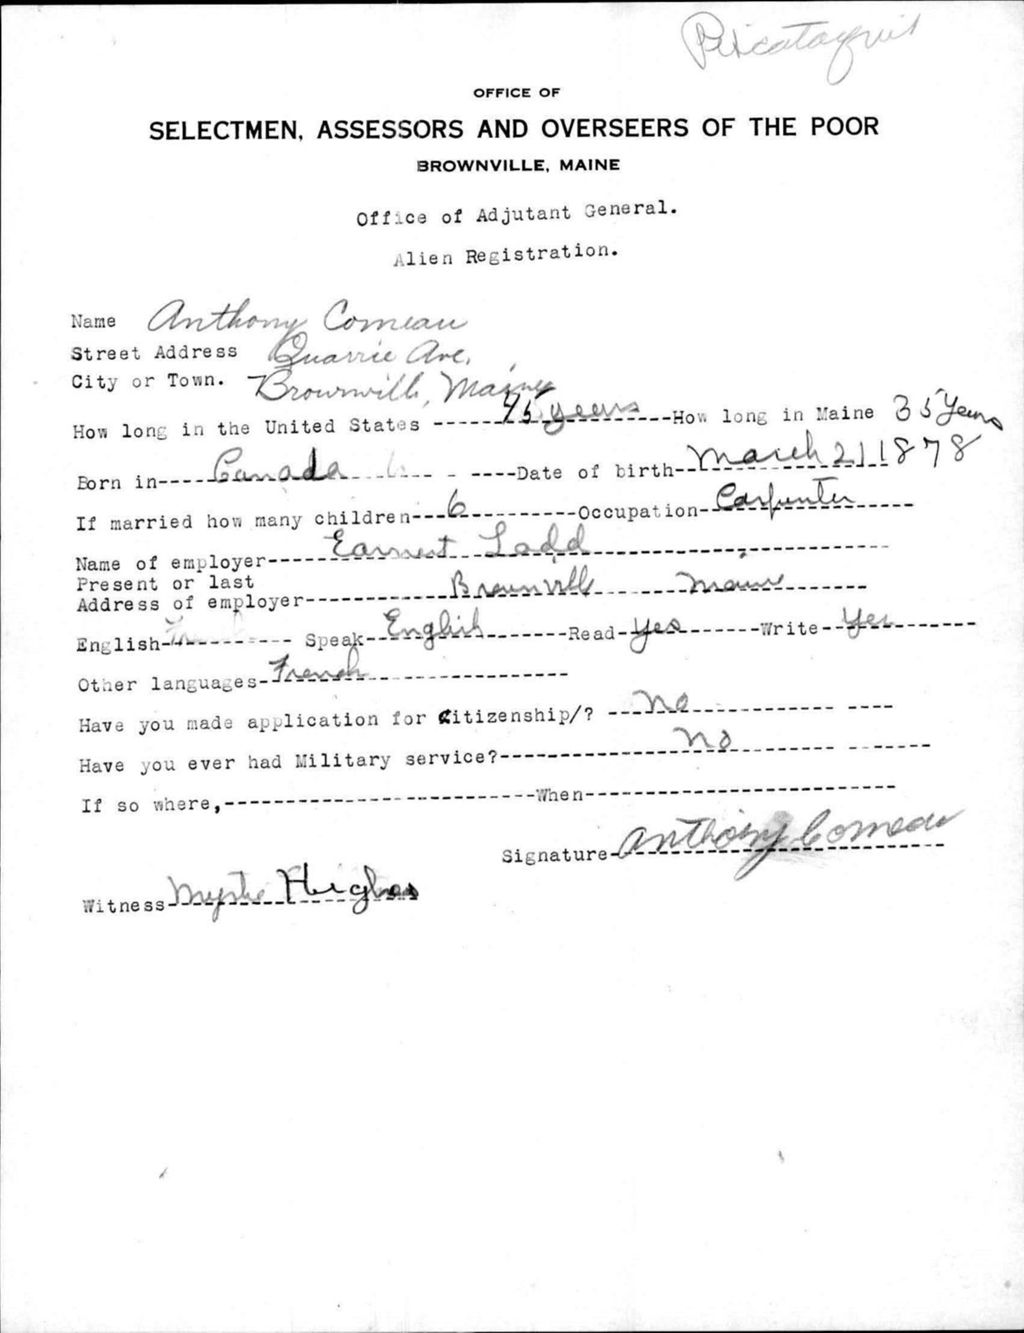 Piscataquis
OFFICE OF
SELECTMEN, ASSESSORS AND OVERSEERS OF THE POOR
BROWNVILLE, MAINE
Office of Adjutant General.
Alien Registration.
Name Anthony Comeau
Street Address Quarrie Ave.
City or Town. Brownville, Maine
How long in the United States ------ years ------How long in Maine 35 Years
Born in----Canada ------Date of birth--March 21 1878
If married how many children---6---------Occupation--Carpenter
Name of employer----Earnest Ladd
Present or last
Address of employer---------Brownville Maine
English--------- Speak--English-------Read-Yes-------Write--Yes
Other languages-French
Have you made application for Citizenship/? ---No
Have you ever had Military service?------------No
If so where,-------------------------When-------------------------
Signature-Anthony Comeau
Witness- Hughes